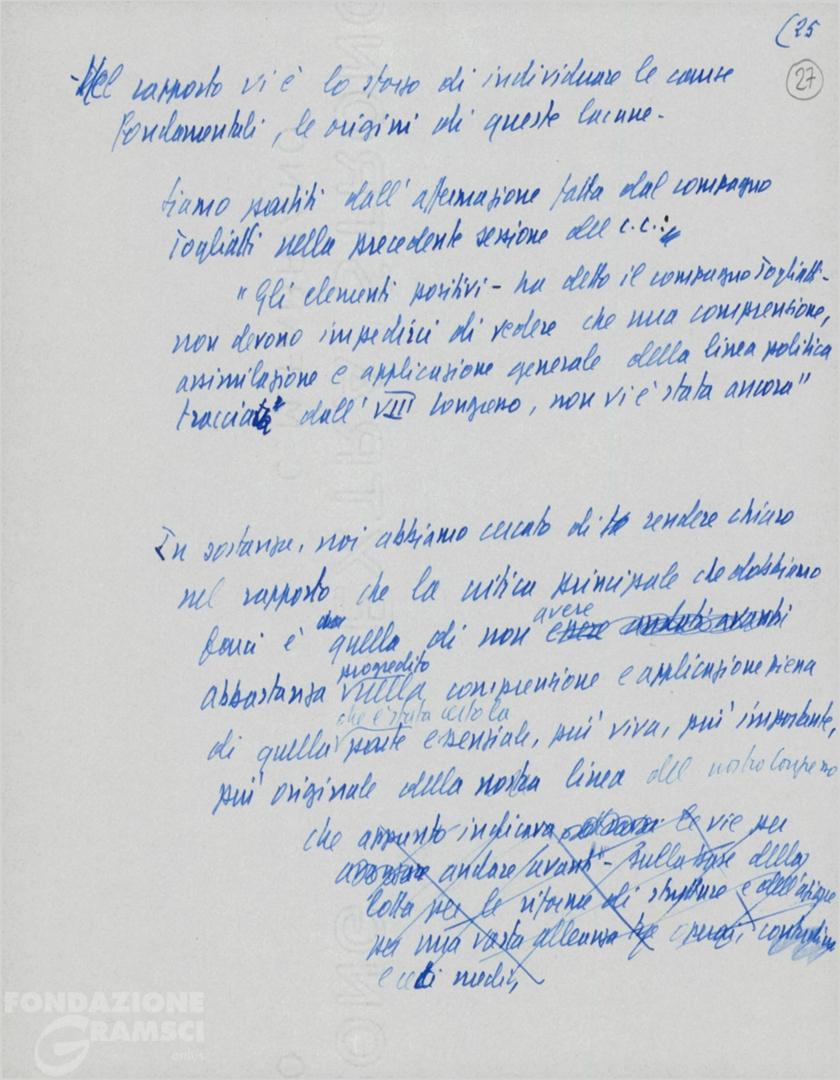 (25
27
- Nel rapporto vi è lo sforzo di individuare le cause
fondamentali, le origini di queste lacune.
Siamo partiti dall'affermazione fatta dal compagno
Togliatti nella precedente sessione del C.C.:
"Gli elementi positivi - ha detto il compagno Togliatti -
non devono impedirci di vedere che una comprensione,
assimilazione e applicazione generale della linea politica
tracciata dall'VIII Congresso, non vi è stata ancora"
In sostanza, noi abbiamo cercato di rendere chiaro
nel rapporto che la critica principale che dobbiamo
avere
farci è quella di non essere andati avanti
progredito
abbastanza nella comprensione e applicazione piena
che è stata certo la
di quella parte essenziale, più viva, più importante,
più originale della nostra linea del nostro Congresso
che appunto indicava le vie per
andare avanti - sulla base della
lotta per le riforme di struttura e dell'azione
per una vasta alleanza tra operai, contadini
e ceti medi,
FONDAZIONE
GRAMSCI
onlus